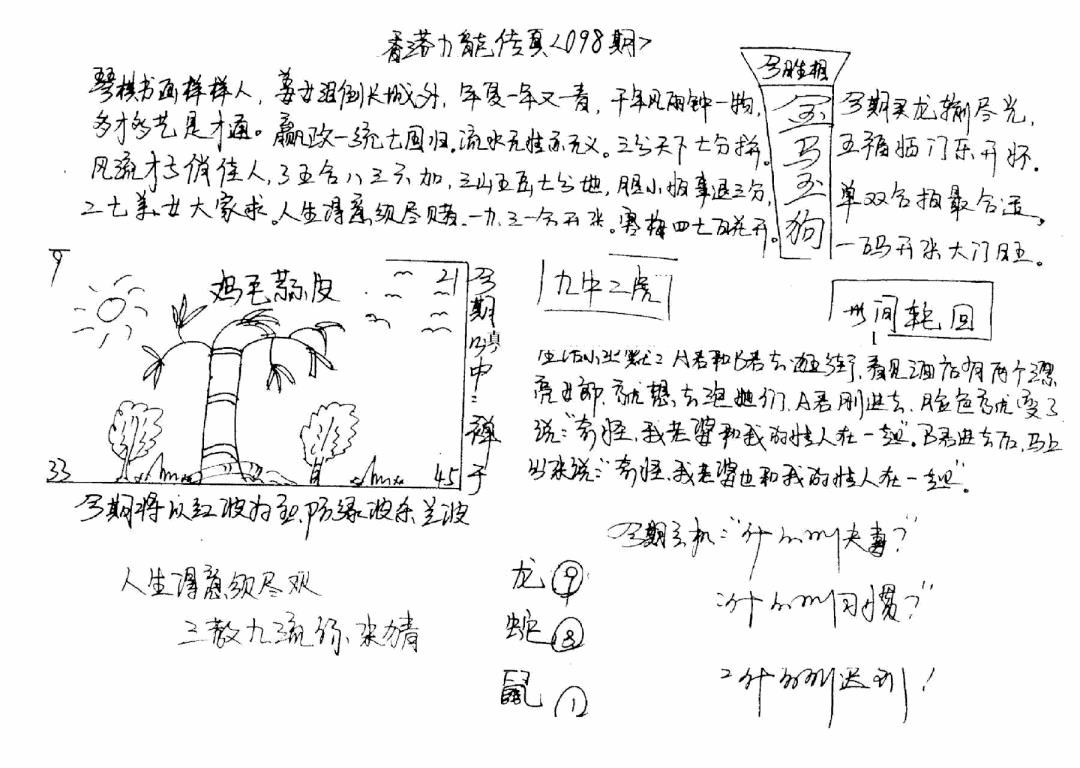 香港力能传真<098期>
琴棋书画样样人，姜女泪倒长城外，年复一年又一春，千年风雨钟一物，
多才多艺是才通。嬴政一统七国归。流水无性亦无义。三分天下七分拼。
风流才子俏佳人，三山五岳七分地，胆小怕事退三分，
二七美女大家求。人生得意须尽赌。一九三一今开张。寒梅四七百花开。
今期生相
金马玉狗
今期买龙输尽光，
五福临门乐开怀。
单双合拍最合适。
一码开张大门旺。
9
21
鸡毛蒜皮
33
45
今期必中：
今期将以红波为主，防绿波杀兰波
九中二虎
世间轮回
A君和B君去逛街，看见酒店有两个漂
亮女郎，就想去泡她们，A君刚进去，脸色就变了
说：“奇怪，我老婆和我的情人在一起”。B君进去后，马上
出来说：“奇怪，我老婆也和我的情人在一起”。
今期玄机：“什么叫夫妻？”
：什么叫习惯？”
：什么叫迟到！
人生得意须尽欢
三教九流
龙 ⑨
蛇 ⑧
鼠 ①